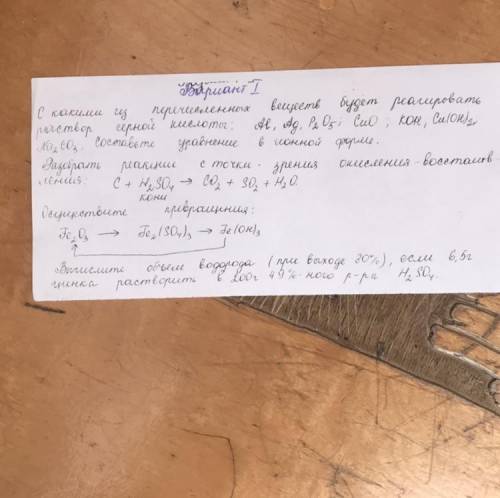 Вариант I
С какими из перечисленных веществ будет реагировать
раствор серной кислоты: Al, Ag, P2O5; CuO; KOH, Ca(OH)2,
CO3. Составьте уравнение в ионной форме.
Разобрать реакцию с точки зрения окисления-восстанов-
ления: C + H2SO4 → CO2 + SO2 + H2O.
конц
Осуществите превращения:
Fe2O3 → Fe2(SO4)3 → Fe(OH)3
Вычислите объем водорода (при выходе 80%), если 6,5г
цинка растворить в 200г 4,9%-ного р-ра H2SO4.